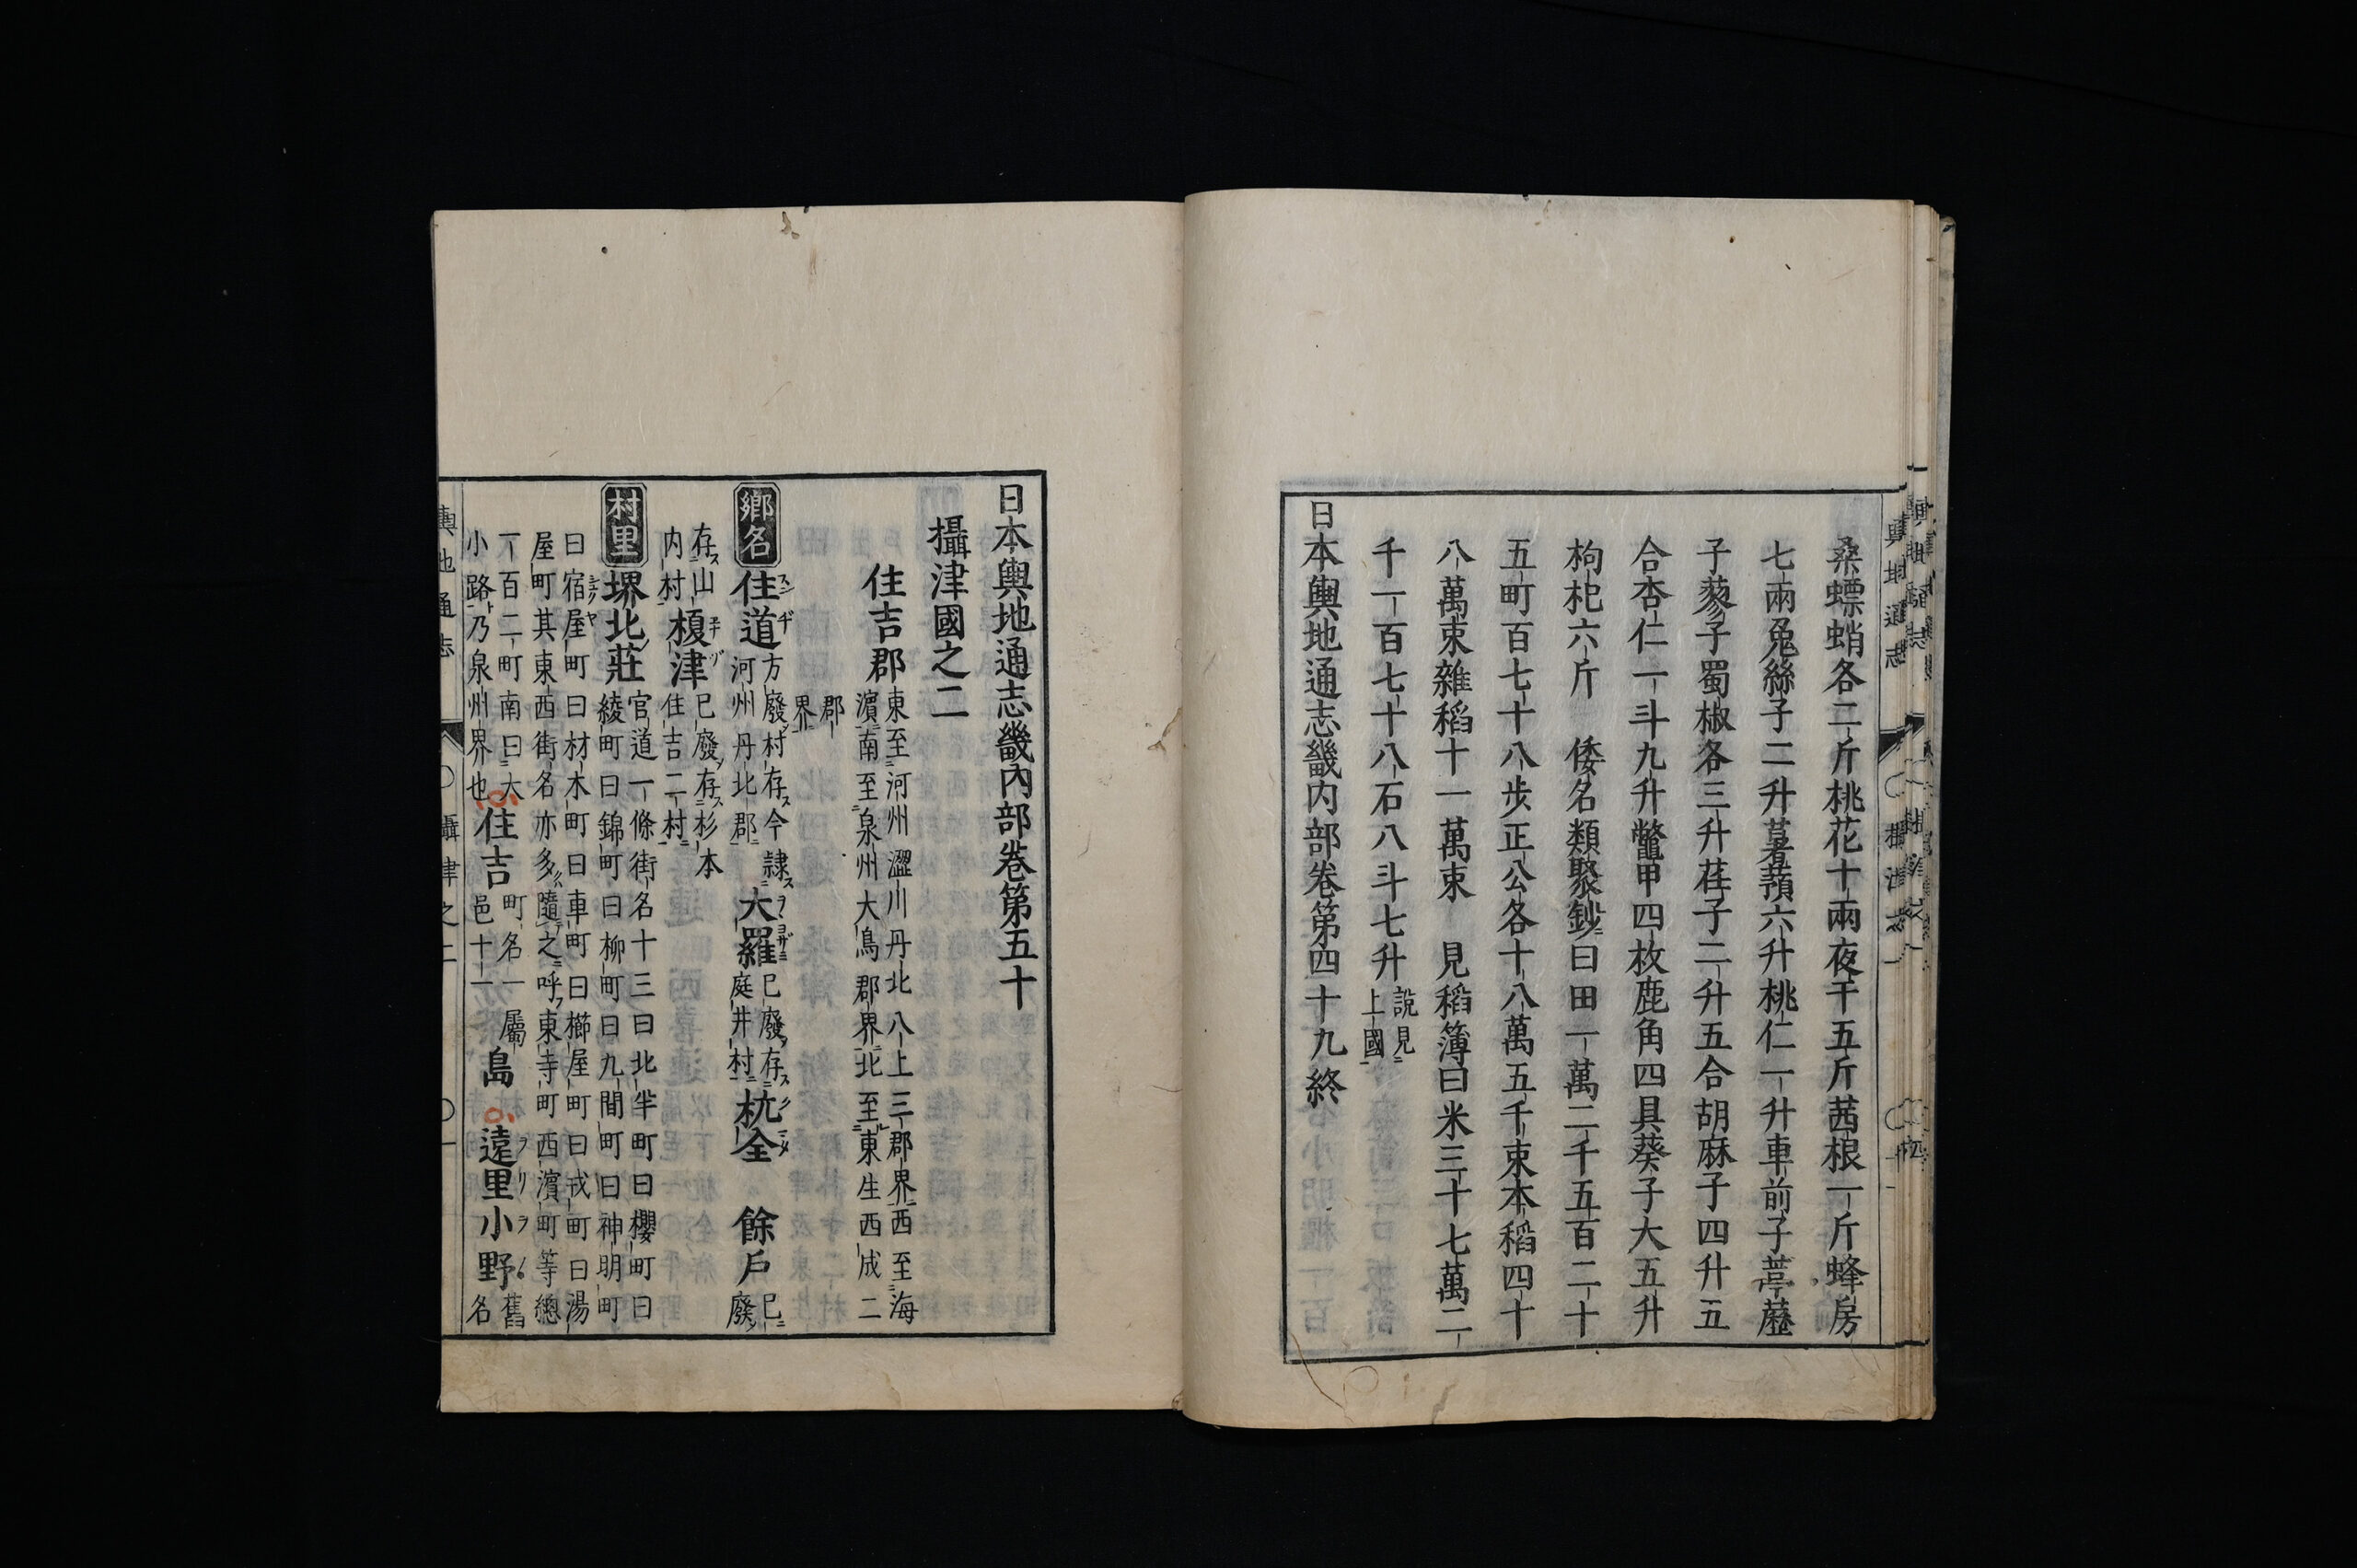 桑螵蛸各二斤桃花十兩夜干五斤茜根一斤蜂房
七兩兔絲子二升薯蕷六升桃仁一升車前子葶藶
子蓼子蜀椒各三升荏子二升五合胡麻子四升五
合杏仁一斗九升鼈甲四枚鹿角四具葵子大五升
枸杞六斤　倭名類聚鈔曰田一萬二千五百二十
五町百七十八歩正公各十八萬五千束本稻四十
八萬束雜稻十一萬束　見稻簿曰米三十七萬二
千一百七十八石八斗七升說見上國
日本輿地通志畿內部卷第四十九終
日本輿地通志畿內部卷第五十
攝津國之二
住吉郡東至河州澀川丹北八上三郡界西至海
濵南至泉州大鳥郡界北至東生西成二
郡
界
鄉名 住道方廢村存今隸河州丹北郡 大羅已廢存庭井村 杭全 餘戶已廢
存山內村 榎津已廢存杉本住吉二村
村里 堺北莊官道一條街名十三曰北半町曰櫻町曰
綾町曰錦町曰柳町曰九間町曰神明町
曰宿屋町曰材木町曰車町曰櫛屋町曰戎町曰湯
屋町其東西街名亦多隨之呼東寺町西濵町等總
一百二町南曰大小路乃泉州界也 住吉町名一屬邑十一 島 遠里小野舊名
輿地通志 攝津之二 一